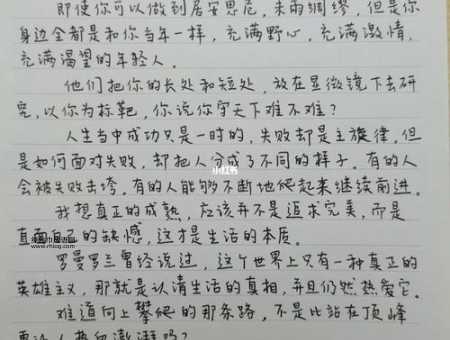 即使你可以做到居安思危，未雨绸缪，但是你
身边全都是和你当年一样，充满野心，充满激情，
充满渴望的年轻人。
他们把你的长处和短处，放在显微镜下去研
究，以你为标靶，你说你守天下难不难？
人生当中成功只是一时的，失败却是主旋律，但
是如何面对失败，却把人分成了不同的样子。有的人
会被失败击垮，有的人能够不断地爬起来继续前进。
小红书
我想真正的成熟，应该并不是追求完美，而是
直面自己的缺憾，这才是生活的本质。
罗曼罗兰曾经说过，这个世界上只有一种真正的
英雄主义，那就是认清生活的真相，并且仍然热爱它。
难道向上攀爬的那条路，不是比站在顶峰
更让人热血澎湃吗？